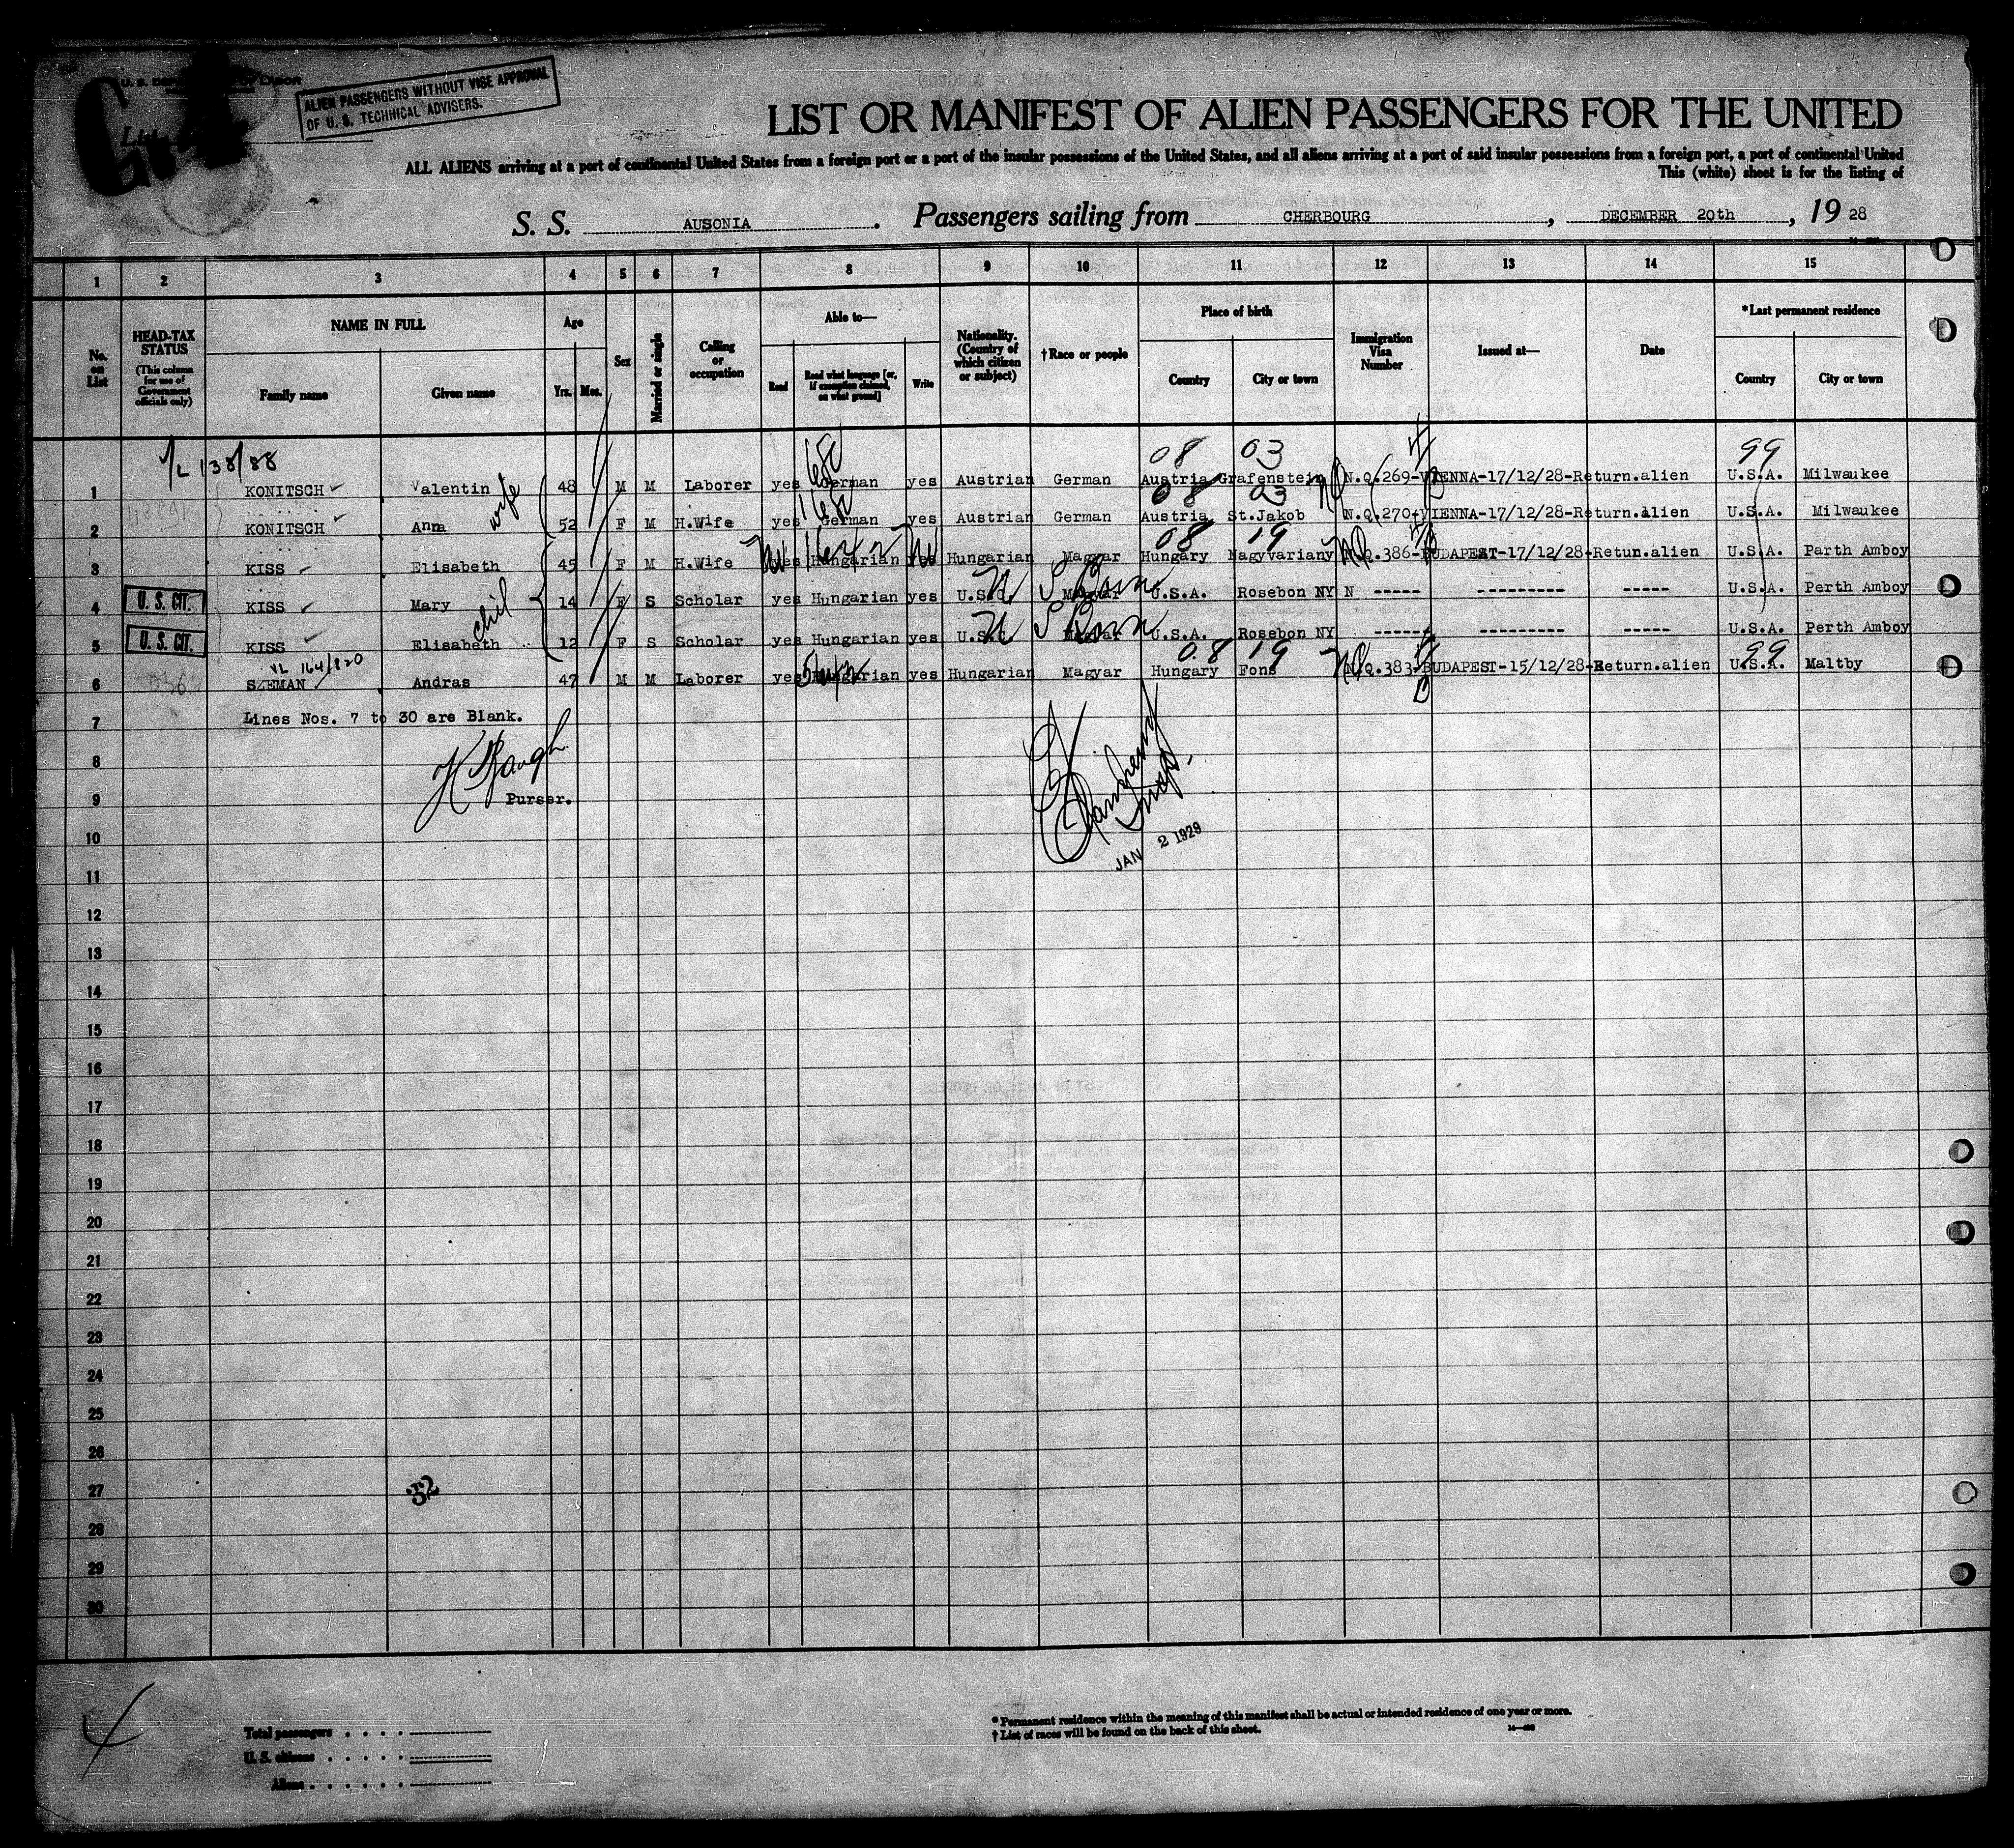 U. S. DEPARTMENT OF LABOR
ALIEN PASSENGERS WITHOUT VISE APPROVAL
OF U. S. TECHNICAL ADVISERS.
List
LIST OR MANIFEST OF ALIEN PASSENGERS FOR THE UNITED
ALL ALIENS arriving at a port of continental United States from a foreign port or a port of the insular possessions of the United States, and all aliens arriving at a port of said insular possessions from a foreign port, a port of continental United
This (white) sheet is for the listing of
S. S. AUSONIA. Passengers sailing from CHERBOURG, DECEMBER 20th, 19 28
1 2 3 4 5 6 7 8 9 10 11 12 13 14 15
No. on List
HEAD-TAX STATUS
(This column for use of Government officials only)
NAME IN FULL
Family name
Given name
Age
Yrs. Mos.
Sex
Married or single
Calling or occupation
Able to—
Read
Read what language [or, if exemption claimed, on what ground]
Write
Nationality. (Country of which citizen or subject)
†Race or people
Place of birth
Country
City or town
Immigration Visa Number
Issued at—
Date
*Last permanent residence
Country
City or town
138/88 08 03 99
1 KONITSCH Valentin 48 M M Laborer yes German yes Austrian German Austria Grafenstein N.Q.269-VIENNA-17/12/28-Return.alien U.S.A. Milwaukee
wife 08 03
2 KONITSCH Anna 52 F M H.Wife yes German yes Austrian German Austria St.Jakob N.Q.270-VIENNA-17/12/28-Return.alien U.S.A. Milwaukee
08 19
3 KISS Elisabeth 45 F M H.Wife yes Hungarian yes Hungarian Magyar Hungary Nagyvariany N.Q.386-BUDAPEST-17/12/28-Retun.alien U.S.A. Parth Amboy
U S Born
4 U. S. CIT. KISS Mary 14 F S Scholar yes Hungarian yes U.S.C. Magyar U.S.A. Rosebon NY N ----- --------- ----- U.S.A. Perth Amboy
chil U S Born
5 U. S. CIT. KISS Elisabeth 12 F S Scholar yes Hungarian yes U.S.C. Magyar U.S.A. Rosebon NY ------ --------- ----- U.S.A. Perth Amboy
VL 164/820 08 19 99
6 SZEMAN Andras 47 M M Laborer yes Hungarian yes Hungarian Magyar Hungary Fons N.Q.383-BUDAPEST-15/12/28-Return.alien U.S.A. Maltby
7 Lines Nos. 7 to 30 are Blank.
8
9 Purser.
JAN 2 1929
10
11
12
13
14
15
16
17
18
19
20
21
22
23
24
25
26
27 32
28
29
30
Total passengers . . . .
U. S. citizens . . . . .
Aliens . . . . . .
* Permanent residence within the meaning of this manifest shall be actual or intended residence of one year or more.
† List of races will be found on the back of this sheet.